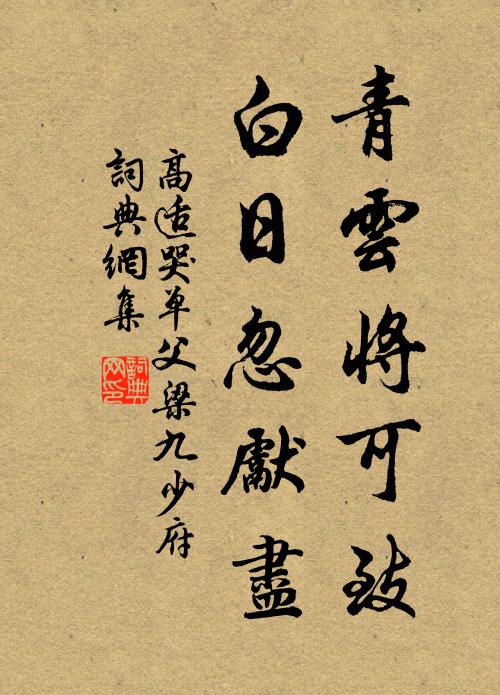 青雲將可致
白日忽獻盡
高適哭單父梁九少府
詞典網集
詞典网印